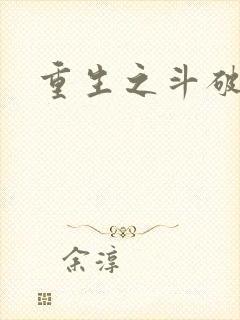 重生之斗破
余淳